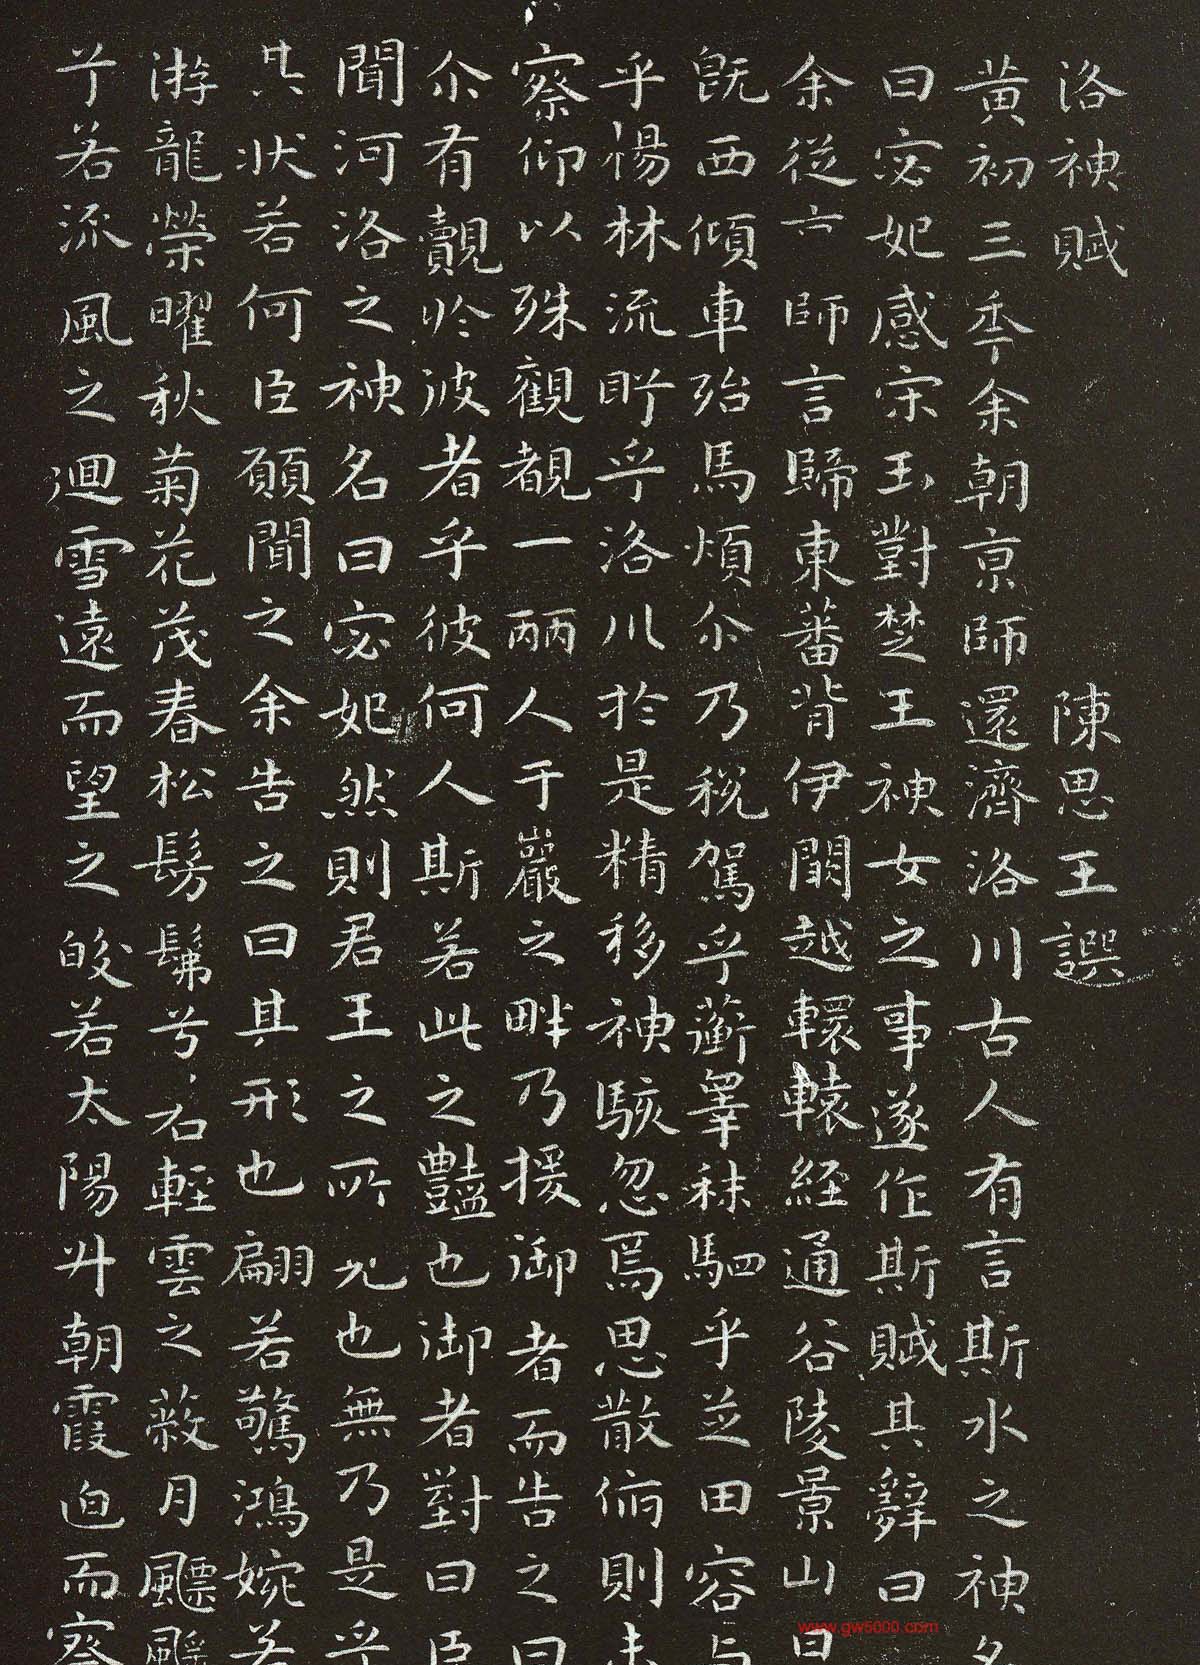 洛神賦 陳思王譔
黃初三年余朝京師還濟洛川古人有言斯水之神名
曰宓妃感宋玉對楚王神女之事遂作斯賦其辭曰
余從京師言歸東蕃背伊闕越轘轅經通谷陵景山日
既西傾車殆馬煩尒乃稅駕乎蘅皋秣駟乎芝田容與
乎楊林流眄乎洛川於是精移神駭忽焉思散俯則未
察仰以殊觀覩一麗人于巖之畔乃援御者而告之曰
尒有覿於彼者乎彼何人斯若此之豔也御者對曰臣
聞河洛之神名曰宓妃然則君王之所見也無乃是乎
其狀若何臣願聞之余告之曰其形也翩若驚鴻婉若
游龍榮曜秋菊花茂春松髣髴兮若輕雲之蔽月飄颻
兮若流風之迴雪遠而望之皎若太陽升朝霞迫而察
www.gw5000.com